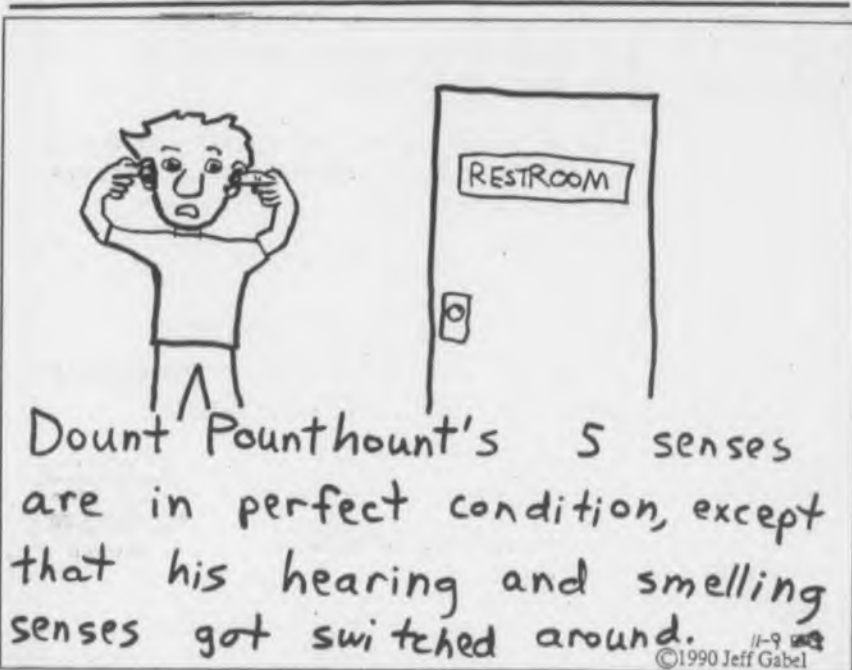 RESTROOM
Dount Pounthount's 5 senses
are in perfect condition, except
that his hearing and smelling
senses got switched around.
11-9
©1990 Jeff Gabel